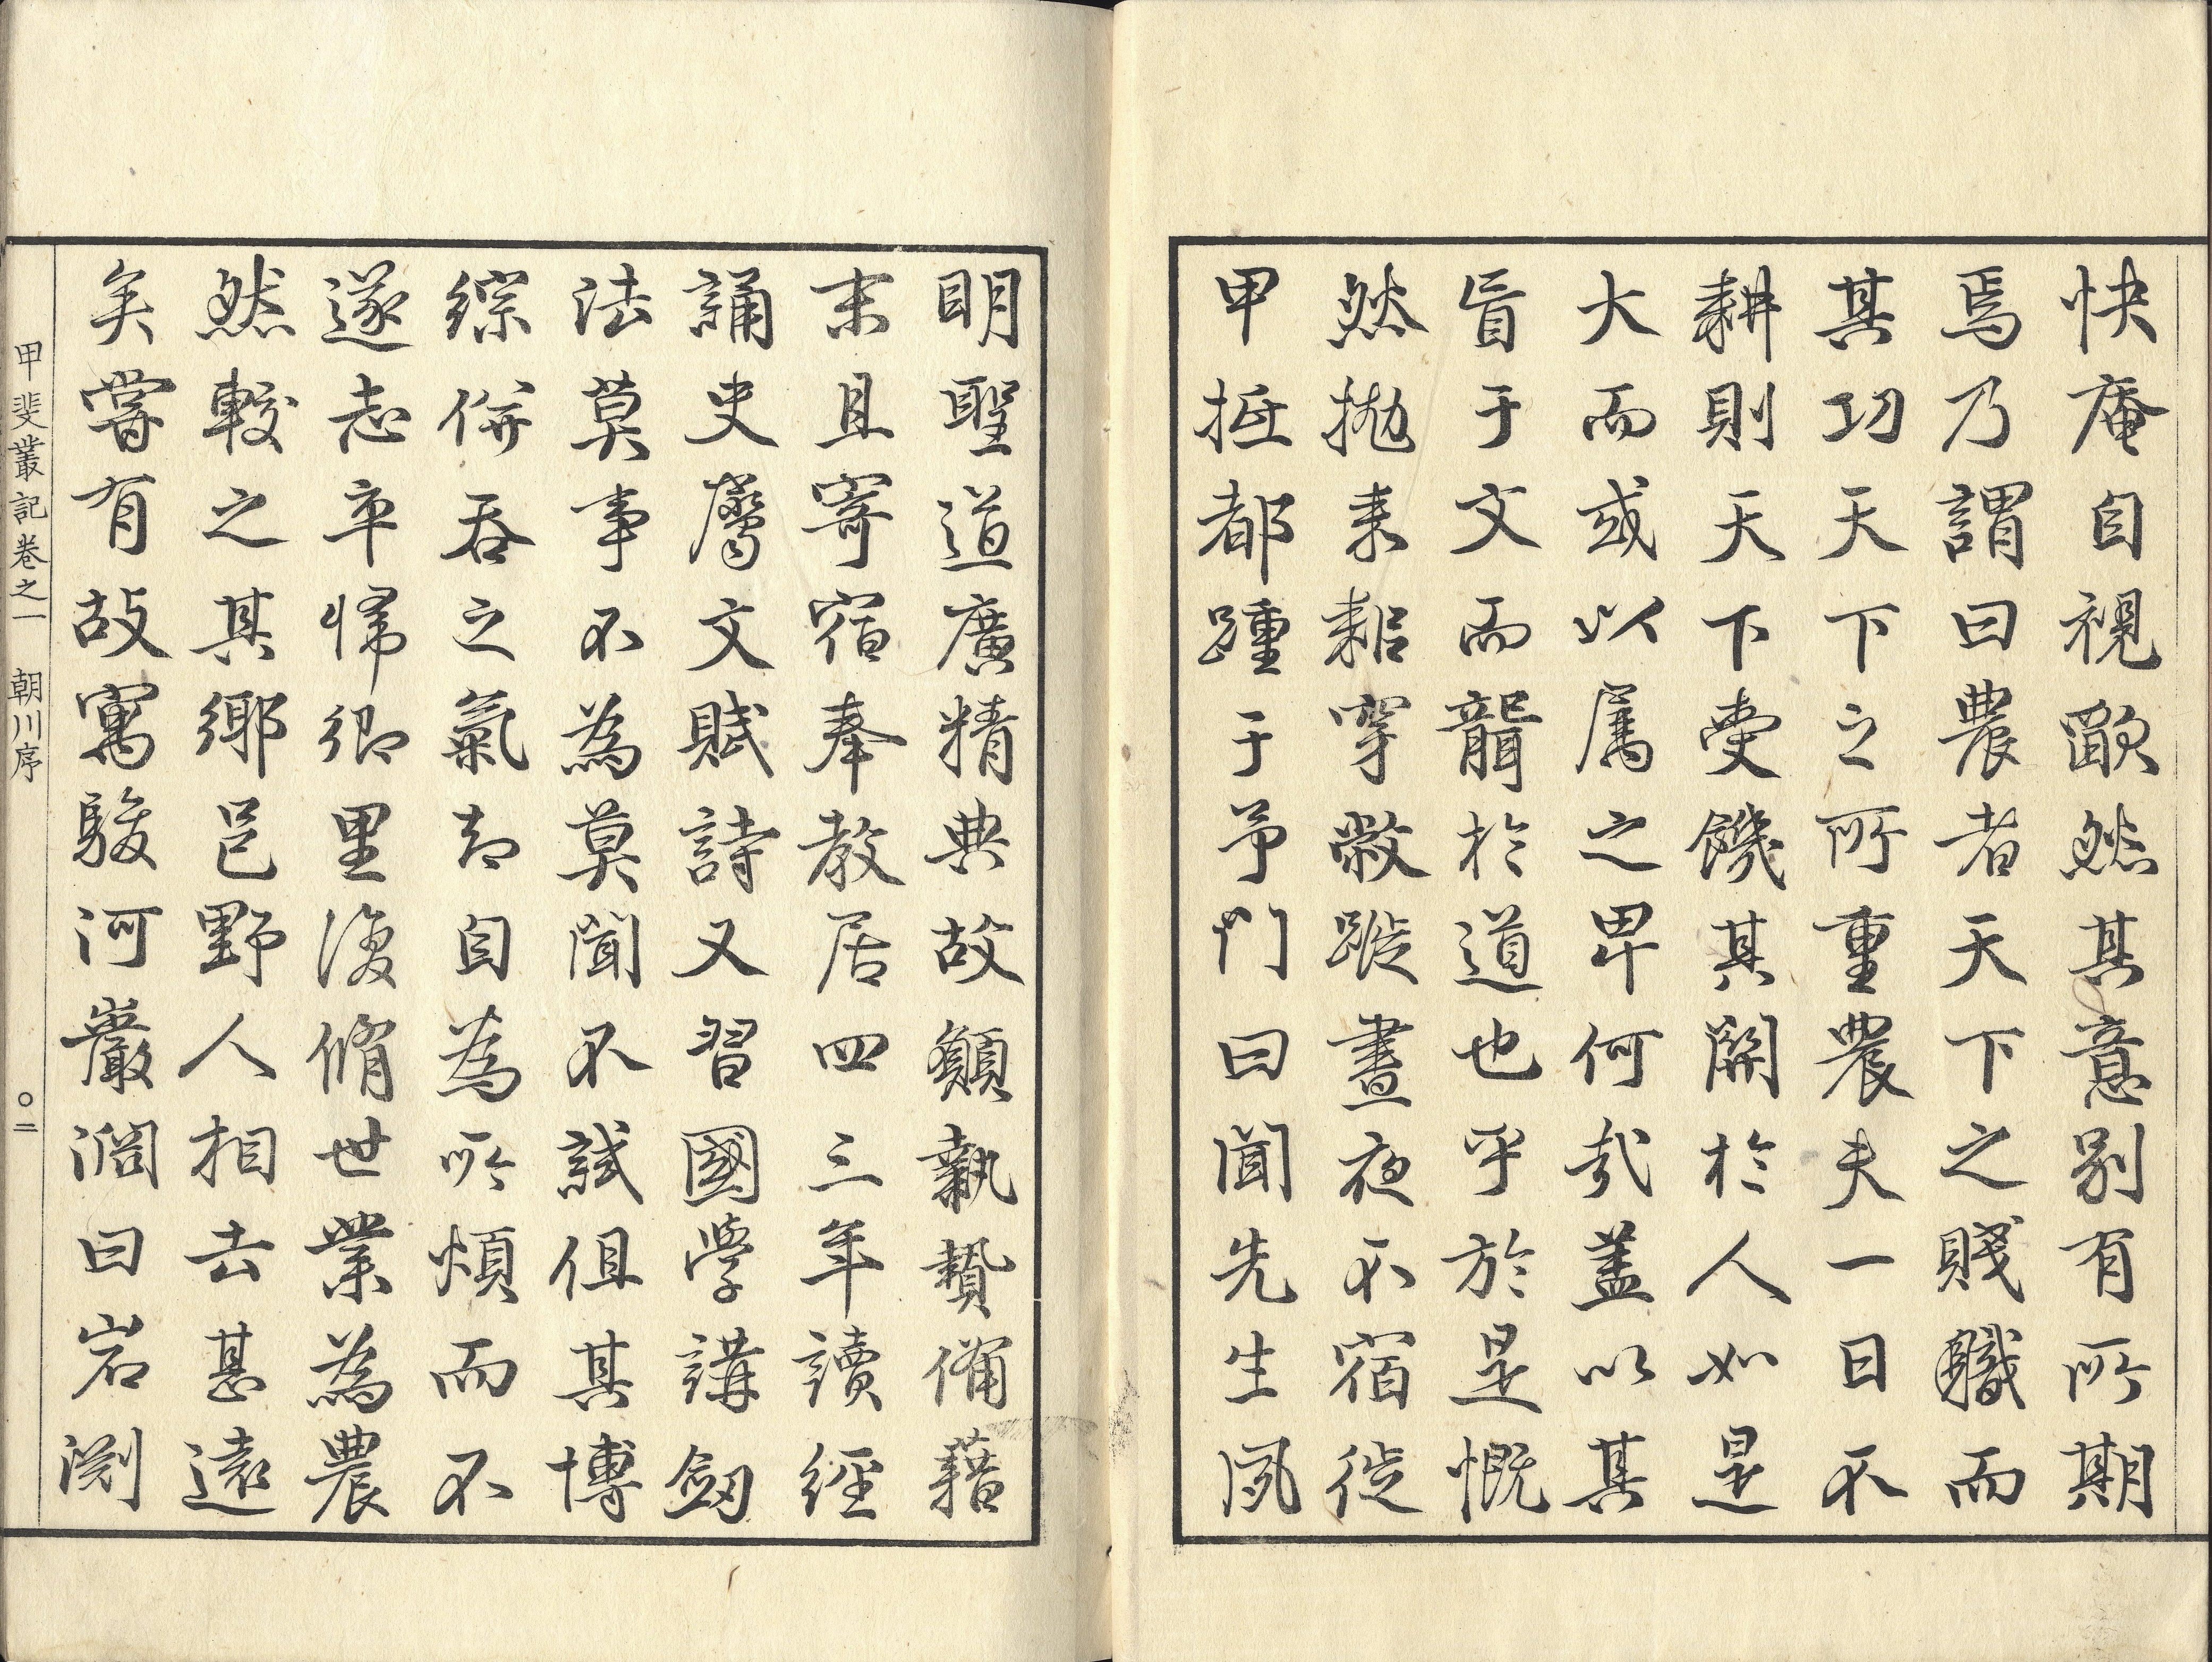 快庵自視歐然其意別有所期
焉乃謂曰農者天下之賤職而
其功天下之所重農夫一日不
耕則天下受饑其關於人如是
大而或以属之卑何哉盖以其
盲于文而聾於道也乎於是慨
然抛耒耜穿敝蹝晝夜不宿徙
甲抵都踵于予門曰聞先生夙
明聖道廣精典故願執贄備藉
末且寄宿奉教居四三年讀經
誦史属文賦詩又習國學講劔
法莫事不為莫聞不試但其博
綜併呑之氣却自為所煩而不
遂志卒帰鄉里復脩世業為農
然較之其鄉邑野人相去甚遠
矣嘗有故寓駿河巖淵曰岩渕
甲斐叢記卷之一 朝川序 〇二